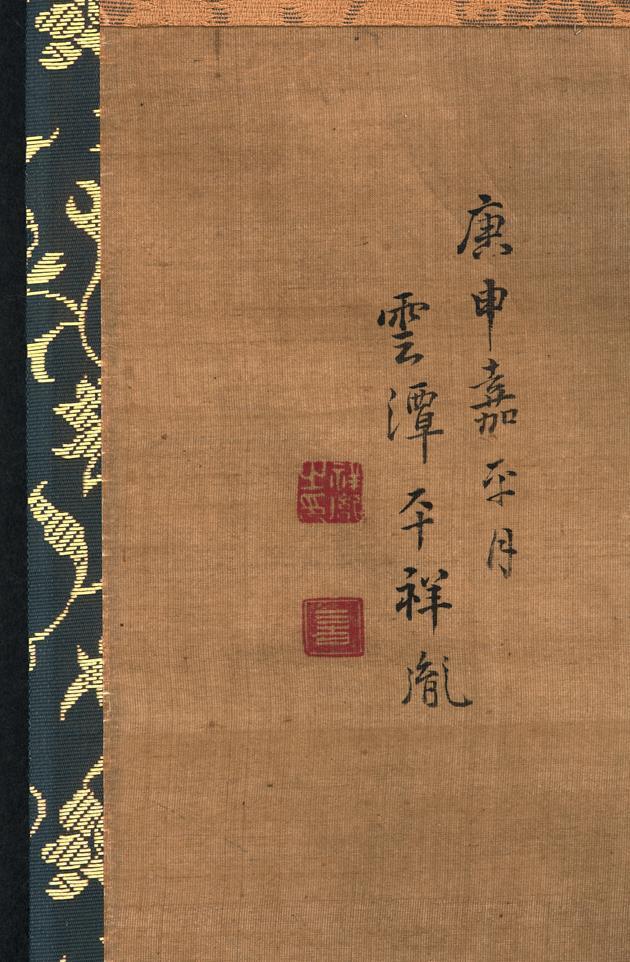 庚申嘉平月
雲潭平祥胤